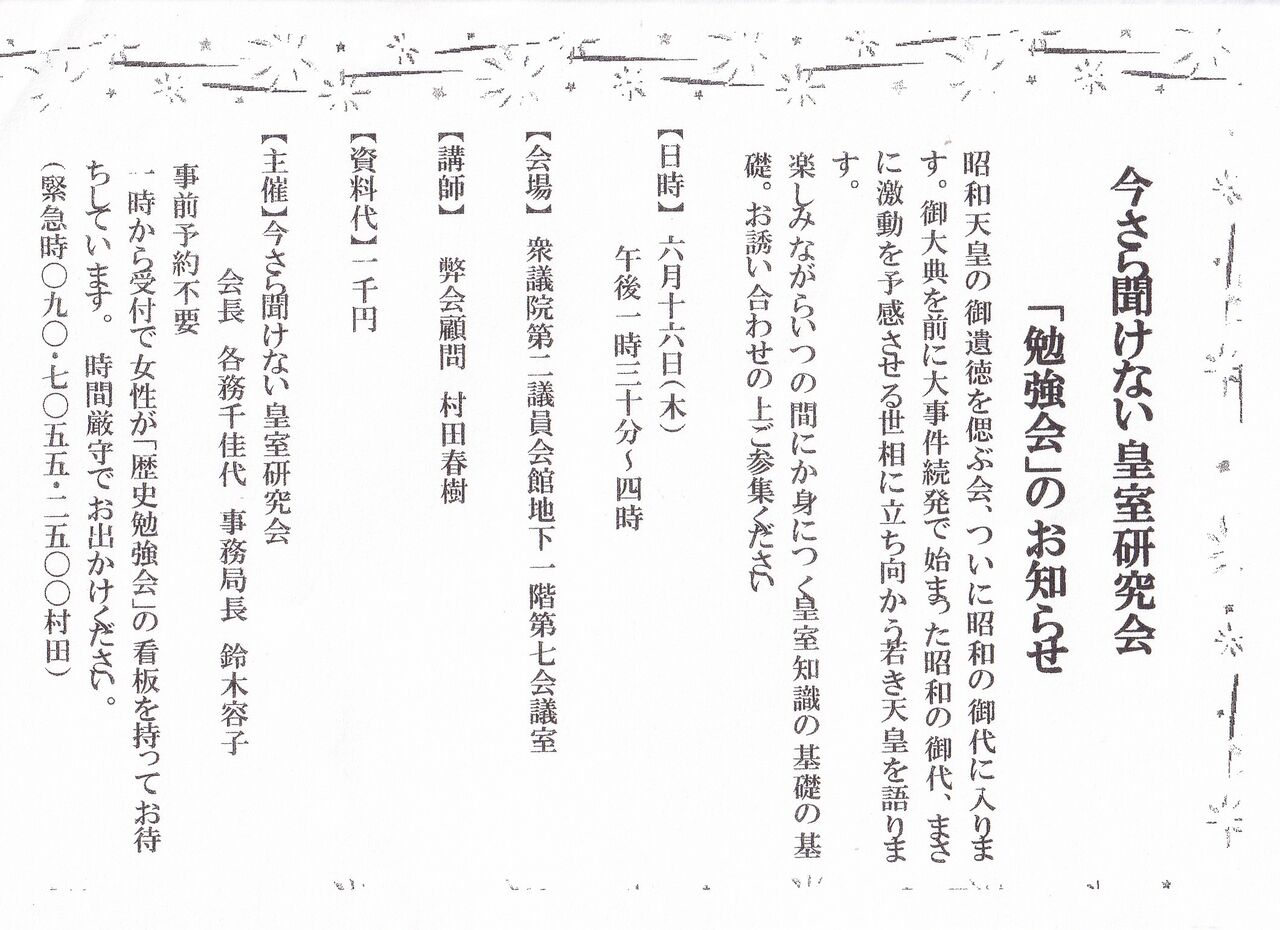 今さら聞けない皇室研究会
「勉強会」のお知らせ
昭和天皇の御遺徳を偲ぶ会、ついに昭和の御代に入りま
す。御大典を前に大事件続発で始まった昭和の御代、まさ
に激動を予感させる世相に立ち向かう若き天皇を語りま
す。
楽しみながらいつの間にか身につく皇室知識の基礎の基
礎。お誘い合わせの上ご参集ください
【日時】六月十六日(木)
午後一時三十分～四時
【会場】 衆議院第二議員会館地下一階第七会議室
【講師】 弊会顧問 村田春樹
【資料代】一千円
【主催】今さら聞けない皇室研究会
会長 各務千佳代 事務局長 鈴木容子
事前予約不要
一時から受付で女性が「歴史勉強会」の看板を持ってお待
ちしています。 時間厳守でお出かけください。
(緊急時〇九〇・七〇五五・二五〇〇村田)